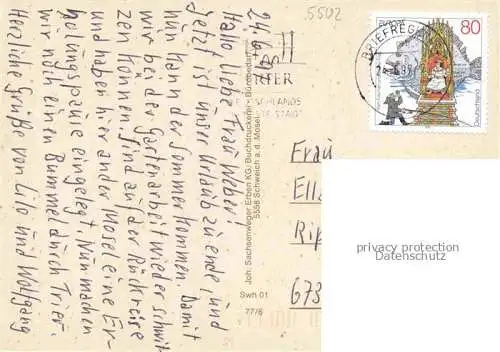 24.6.
Hallo liebe Frau Weber!
Jetzt ist unser Urlaub zu ende, und
nun kann der Sommer kommen. Damit
wir bei der Gartenarbeit wieder schwit-
zen können sind auf der Rückreise
und haben hier an der Mosel eine Er-
holungspause eingelegt. Nun machen
wir noch einen Bummel durch Trier.
Herzliche Grüße von Lilo und Wolfgang
Joh. Sachsenweger Erben KG, Buchdruckerei - Bürobedarf
5558 Schweich a. d. Mosel
Swh 01
77/6
5502
BRIEFREGION
EUROPA
80
Deutschland
Frau
Ell
Rip
673
privacy protection
Datenschutz